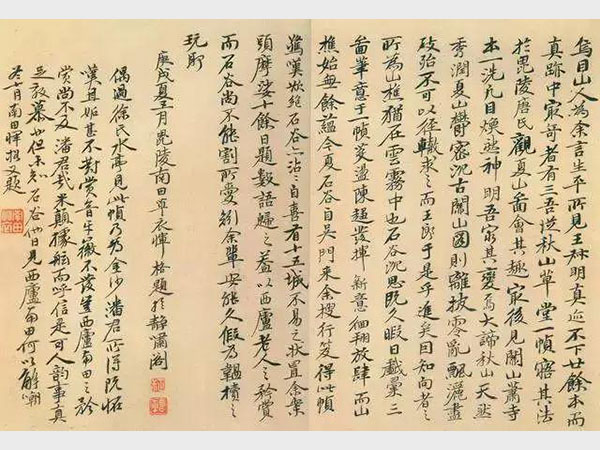 烏目山人為余言生平所見王叔明真跡不下廿餘本而
真跡中最奇者有三吾從秋山草堂一幀悟其法
於毘陵唐氏觀夏山圖會其趣最後見關山蕭寺
本一洗凡目煥然神明吾窮其變焉大諦秋山天然
秀潤夏山鬱密沉古關山圖則離披零亂飄灑盡
致殆不可以徑轍求之而王郎于是乎進矣因知向者之
所為山樵猶在雲霧中也石谷沉思既久暇日戲彙三
圖筆意于一幀滌盪陳趨發揮新意徊翔放肆而山
樵始無餘蘊今夏石谷自吳門來余搜行笈得此幀
驚嘆欲絕石谷亦沾沾自喜有十五城不易之狀置余案
頭摩挲十餘日題數語歸之蓋以西廬老人之矜賞
而石谷尚不能割所愛矧余輩安能久假為韞櫝之
玩耶
庚戌夏五月毘陵南田草衣惲格題於靜嘯閣
偶過徐氏水亭見此幀乃為金沙潘君所得既怪
嘆且妒甚不對賞音牙徽不發豈西廬南田之矜
賞尚不及潘君哉米顛據舷而呼信是可人韻事真
足效慕也但未知石谷他日見西廬南田何以解嘲
冬十月南田惲格又題